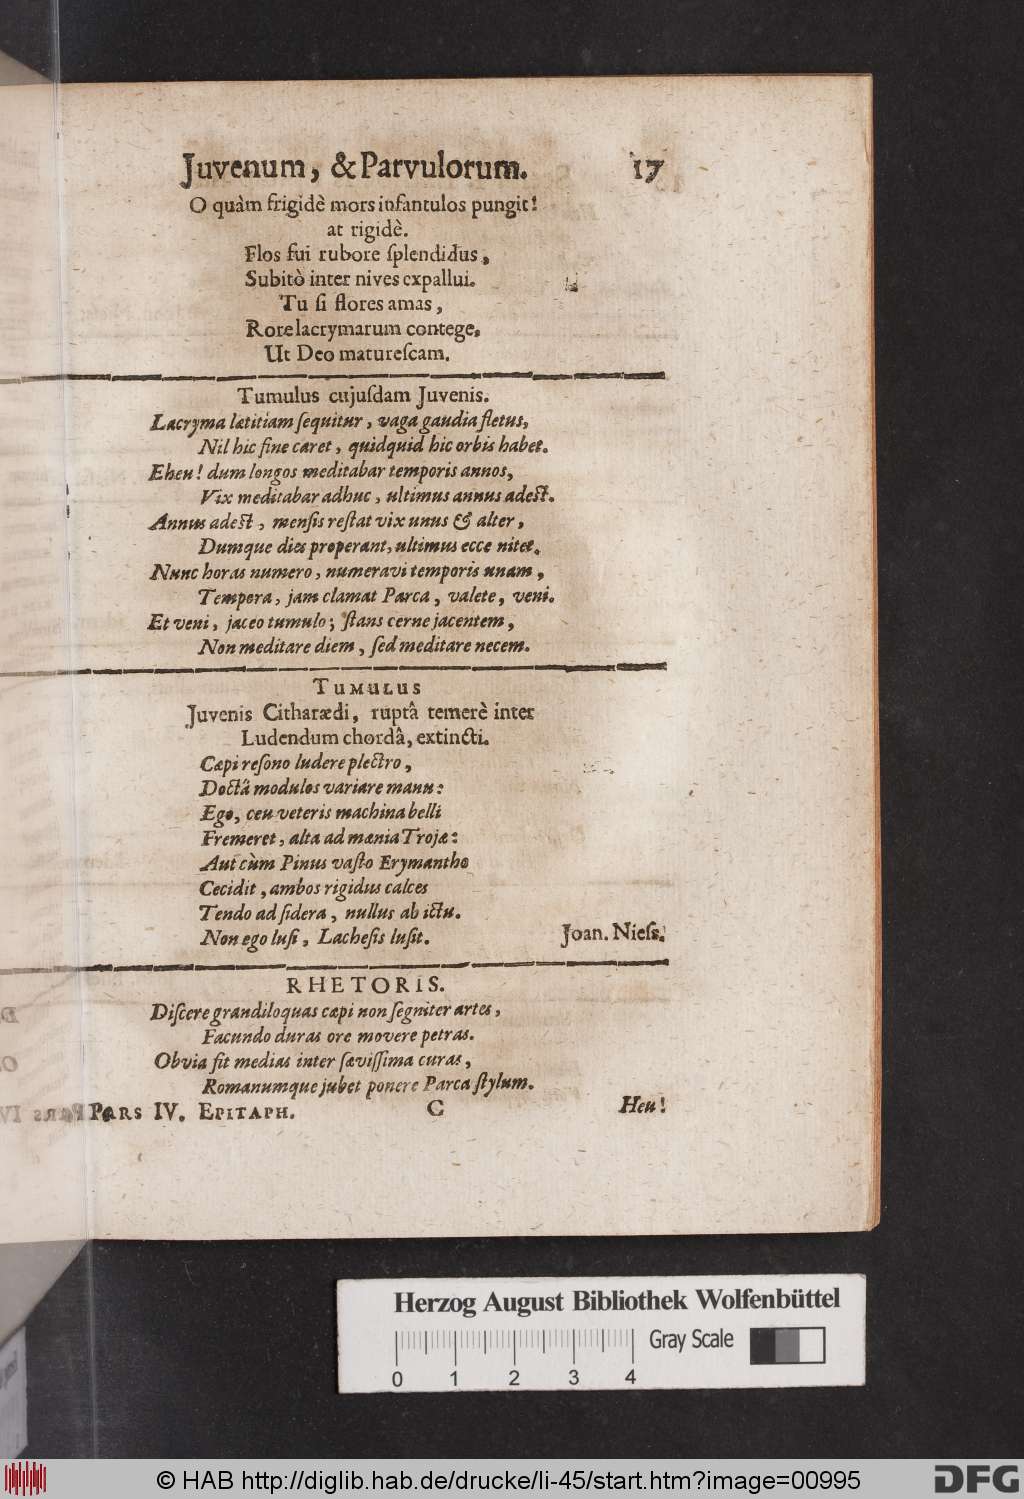 Juvenum, & Parvulorum. 17
O quàm frigidè mors infantulos pungit!
at rigidè.
Flos fui rubore ſplendidus,
Subitò inter nives expallui.
Tu ſi flores amas,
Rore lacrymarum contege,
Ut Deo matureſcam.
Tumulus cujuſdam Juvenis.
Lacryma lætitiam ſequitur, vaga gaudia fletus,
Nil hic fine caret, quidquid hic orbis habet.
Eheu! dum longos meditabar temporis annos,
Vix meditabar adhuc, ultimus annus adeſt.
Annus adeſt, menſis reſtat vix unus & alter,
Dumque dies properant, ultimus ecce nitet.
Nunc horas numero, numeravi temporis unam,
Tempora, jam clamat Parca, valete, veni.
Et veni, jaceo tumulo; ſtans cerne jacentem,
Non meditare diem, ſed meditare necem.
TUMULUS
Juvenis Citharædi, ruptâ temerè inter
Ludendum chordâ, extincti.
Cæpi reſono ludere plectro,
Doctâ modulos variare manu:
Ego, ceu veteris machina belli
Fremeret, alta ad mænia Trojæ:
Aut cùm Pinus vaſto Erymantho
Cecidit, ambos rigidus calces
Tendo ad ſidera, nullus ab ictu.
Non ego luſi, Lacheſis luſit. Joan. Nieſs.
RHETORIS.
Diſcere grandiloquas cæpi non ſegniter artes,
Facundo duras ore movere petras.
Obvia fit medias inter ſæviſſima curas,
Romanumque jubet ponere Parca ſtylum.
PARS IV. EPITAPH. C Heu!
Herzog August Bibliothek Wolfenbüttel
Gray Scale
0 1 2 3 4
© HAB http://diglib.hab.de/drucke/li-45/start.htm?image=00995 DFG